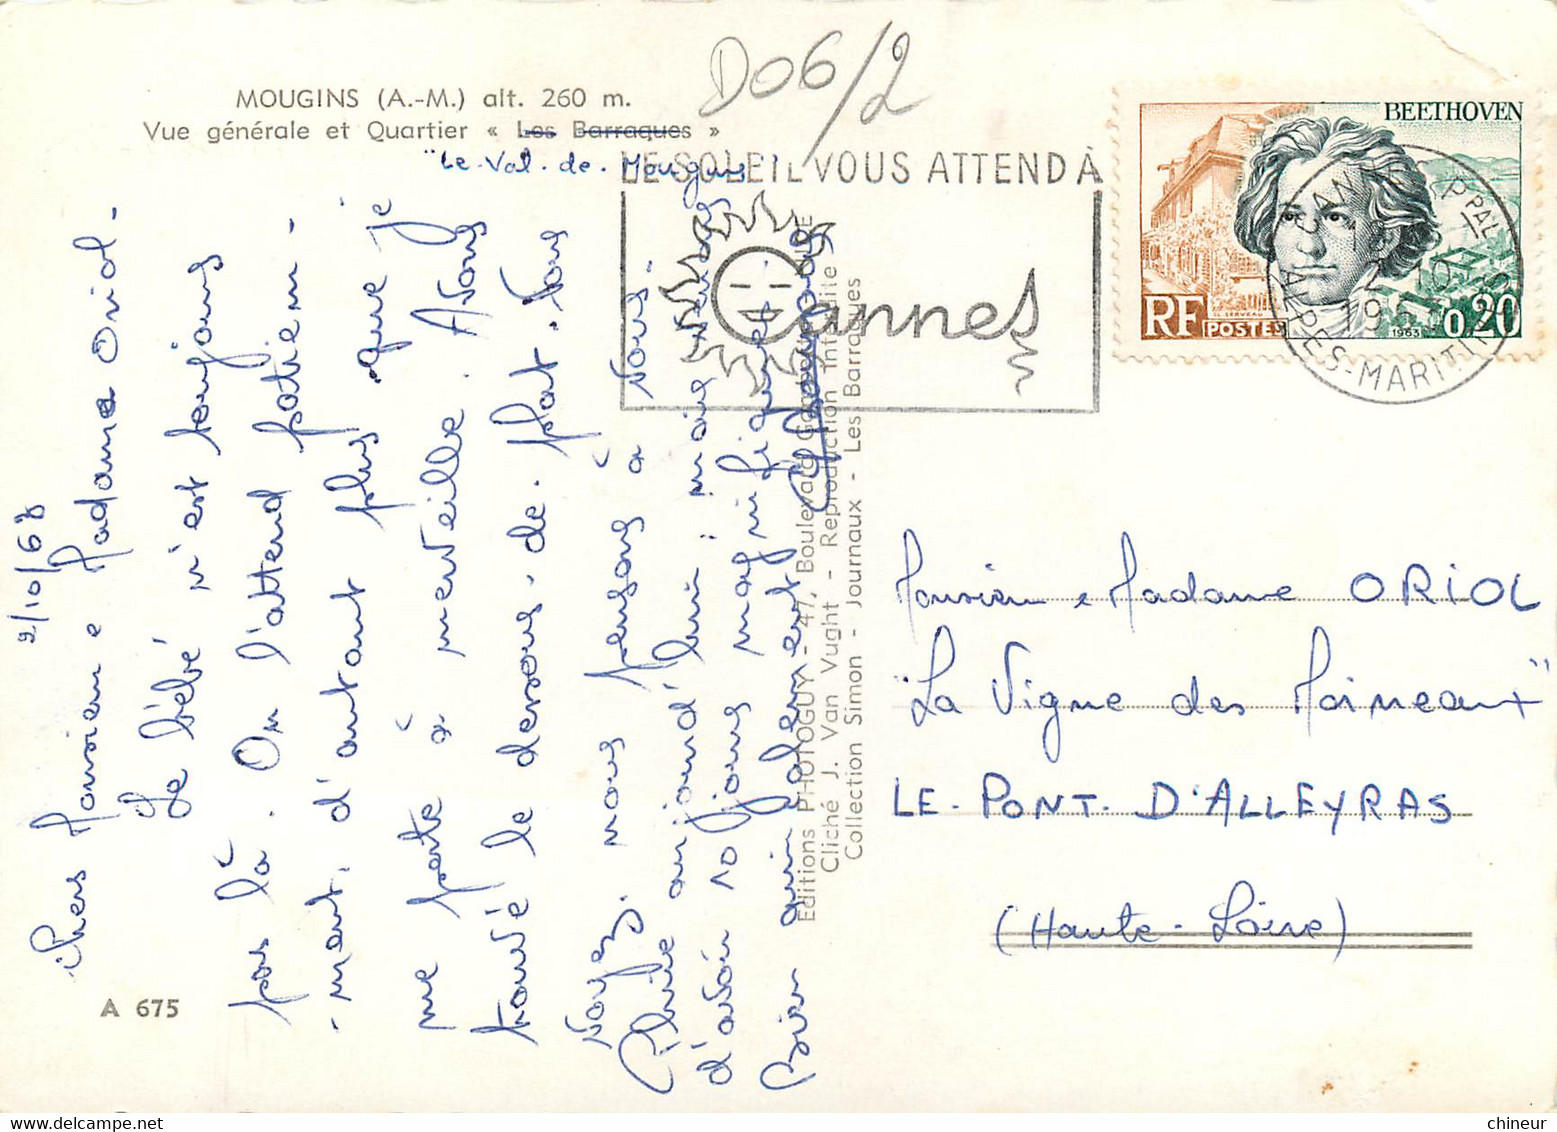 MOUGINS (A.-M.) alt. 260 m.
Vue générale et Quartier « Les Barraques »
"Le-Val-de-Mougins"
D06/2
LE SOLEIL VOUS ATTEND À
Cannes
BEETHOVEN
RF POSTES
1963 0,20
CANNES PPAL
ALPES-MARITIMES
2/10/63
Chers Monsieur e Madame Oriol -
Le bébé n'est toujours
pas là. On l'attend patiem-
-ment, d'autant plus que je
me porte à merveille. Avons
trouvé le dessous-de-plat. Vous
voyez, nous pensons à vous-
Pluie aujourd'hui: mais nous venons
d'avoir 10 jours magnifiques
Bien amicalement
Editions PHOTOGUY - 47, Boulevard
Cliché J. Van Vught - Reproduction Interdite
Collection Simon - Journaux - Les Barraques
A 675
Monsieur e Madame ORIOL
"La Vigne des Moineaux"
LE-PONT-D'ALLEYRAS
(Haute-Loire)
chineur